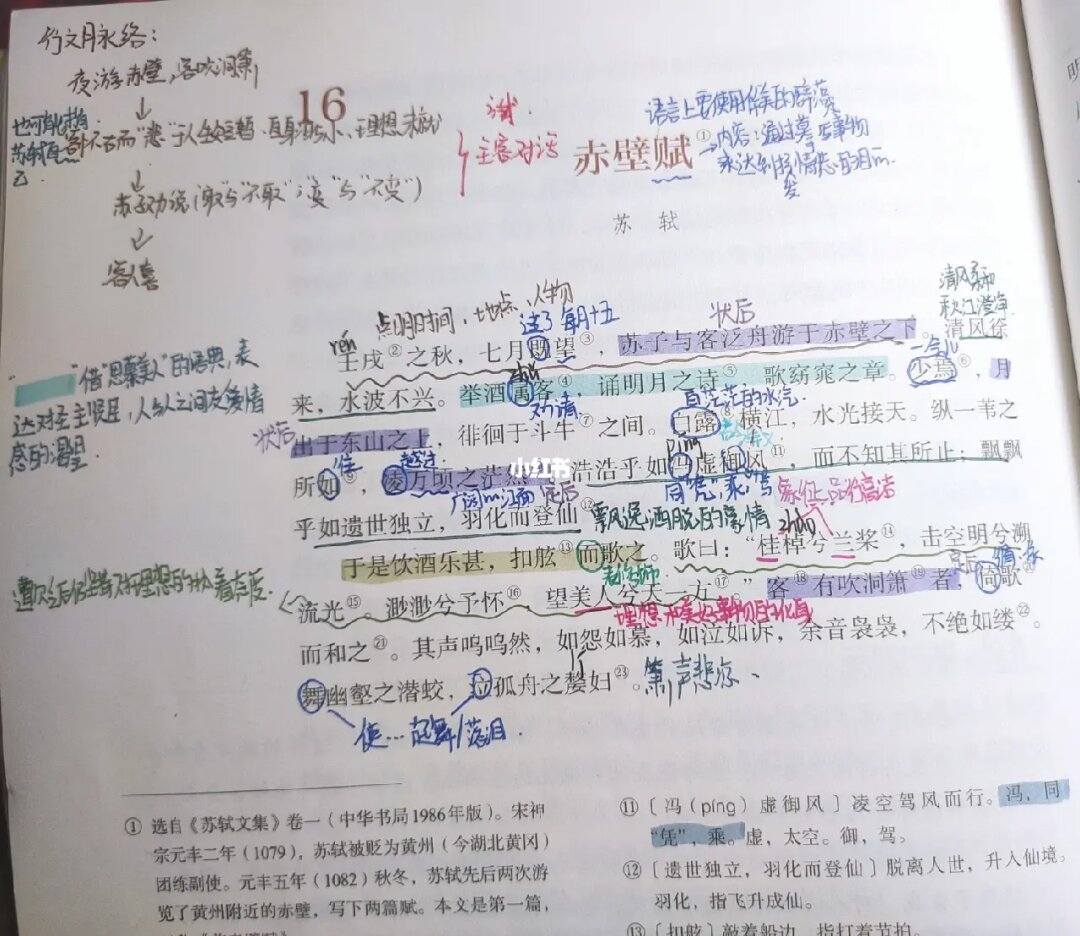 行文脉络：
夜游赤壁，客吹洞箫
↓
也可能代指
苏轼自己
"悲"于人生短暂、自身渺小、理想未成
↓
苏子劝说（"取"与"不取"；"变"与"不变"）
↓
客人喜
16
主客对话
赤壁赋①
→内容：通过写景事物
来达到抒情
发
苏 轼
点明时间、地点、人物
过了每月十五
状后
清风柔和
秋江澄净
rén
壬戌②之秋，七月既望③，苏子与客泛舟游于赤壁之下。清风徐
zhǔ
来，水波不兴。举酒属客④，诵明月之诗⑤，歌窈窕之章。少焉⑥，月
劝请
白茫茫的水汽
状后
出于东山之上，徘徊于斗牛⑦之间。白露⑧横江，水光接天。纵一苇之
任
越过
píng
所如⑨，凌万顷之茫然。浩浩乎如冯虚御风⑪，而不知其所止；飘飘
广阔的江面
定后
同"凭"，乘
驾
象征品行高洁
乎如遗世独立，羽化而登仙⑫。
飘逸洒脱的豪情
zhào
于是饮酒乐甚，扣舷⑬而歌之。歌曰："桂棹兮兰桨⑭，击空明兮溯
表修饰
定后
流光⑮。渺渺兮予怀⑯，望美人兮天一方⑰。"客⑱有吹洞箫⑲者，倚歌⑳
理想和美好事物的化身
而和之㉑。其声呜呜然，如怨如慕，如泣如诉，余音袅袅，不绝如缕㉒。
lí
舞幽壑之潜蛟，泣孤舟之嫠妇㉓。箫声悲凉、
使…起舞/落泪．
"借"思慕美人"的语典，表
达对圣主贤臣，人与人之间友爱情
感的渴望
① 选自《苏轼文集》卷一（中华书局1986年版）。宋神
宗元丰二年（1079），苏轼被贬为黄州（今湖北黄冈）
团练副使。元丰五年（1082）秋冬，苏轼先后两次游
览了黄州附近的赤壁，写下两篇赋。本文是第一篇，
⑪〔冯（píng）虚御风〕凌空驾风而行。冯，同
"凭"，乘。虚，太空。御，驾。
⑫〔遗世独立，羽化而登仙〕脱离人世，升入仙境。
羽化，指飞升成仙。
⑬〔扣舷〕敲着船边，指打着节拍。
小红书
明